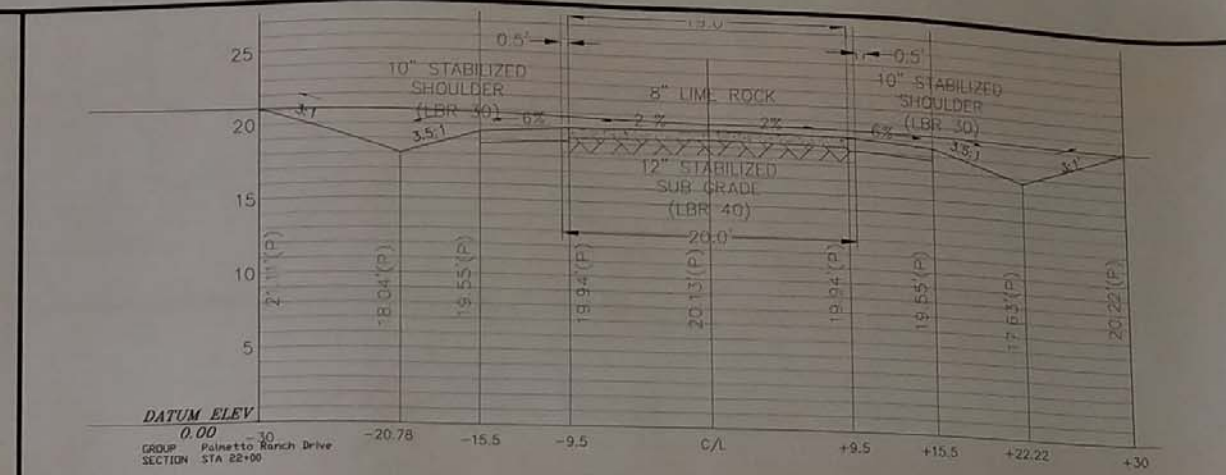 19.0'
0.5'
0.5'
25
10" STABILIZED
SHOULDER
(LBR 30)
8" LIME ROCK
10" STABILIZED
SHOULDER
(LBR 30)
20
3:1
3.5:1
6%
2 %
2%
6%
3.5:1
3:1
12" STABILIZED
SUB GRADE
(LBR 40)
15
20.0'
10
21.11'(P)
18.04'(P)
19.55'(P)
19.94'(P)
20.13'(P)
19.94'(P)
19.55'(P)
17.63'(P)
20.22'(P)
5
DATUM ELEV
0.00
-30
-20.78
-15.5
-9.5
C/L
+9.5
+15.5
+22.22
+30
GROUP Palmetto Ranch Drive
SECTION STA 22+00